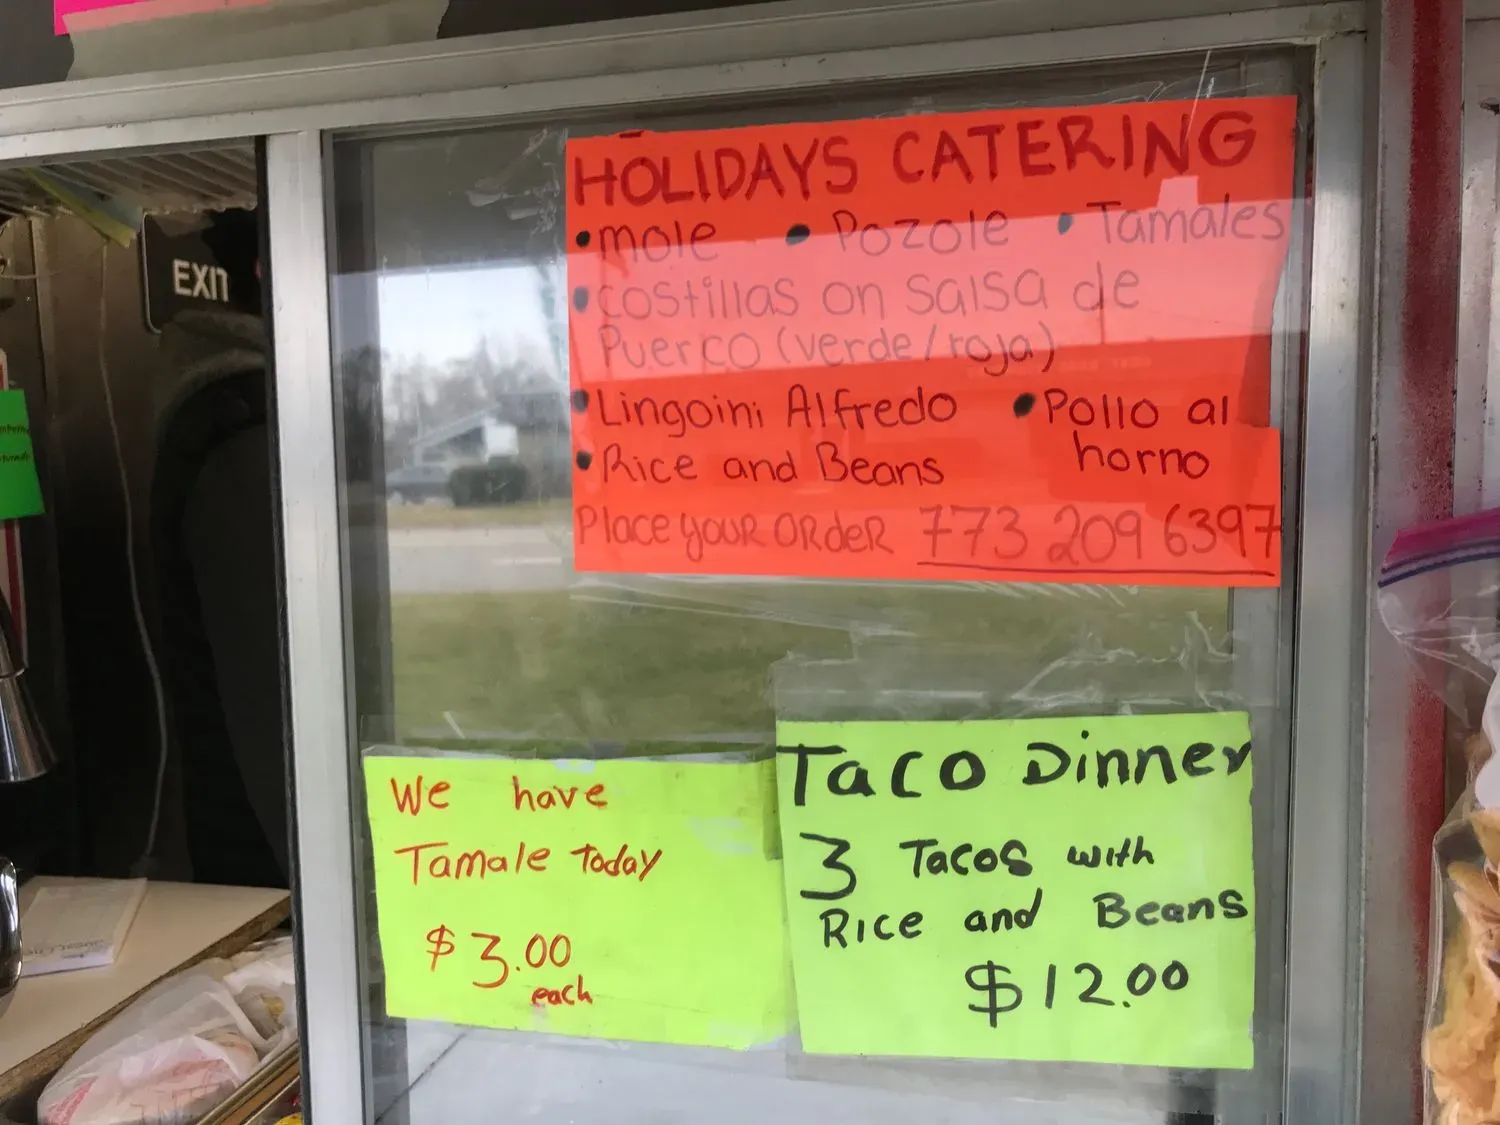 HOLIDAYS CATERING
• mole • Pozole • Tamales
• costillas on salsa de
Puerco (verde/roja)
• Lingoini Alfredo • Pollo al
horno
• Rice and Beans
Place your order 773 209 6397
We have
Tamale Today
$3.00
each
Taco Dinner
3 Tacos with
Rice and Beans
$12.00
EXIT